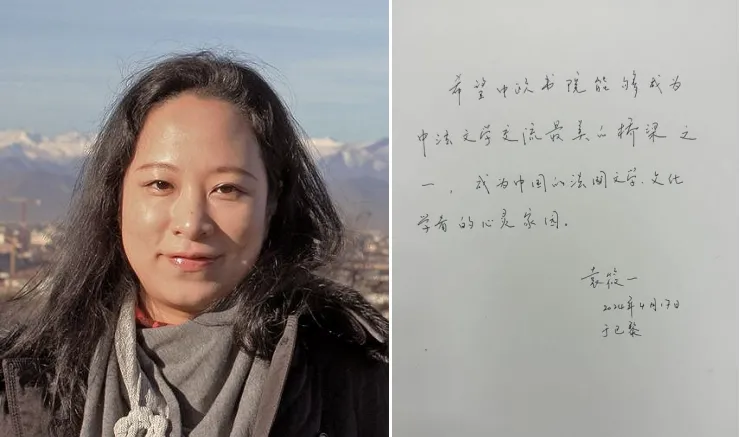 希望中法书院能够成为
中法文学交流最美的桥梁之
一，成为中国的法国文学、文化
学者的心灵家园。
袁筱一
2024年4月17日
于巴黎